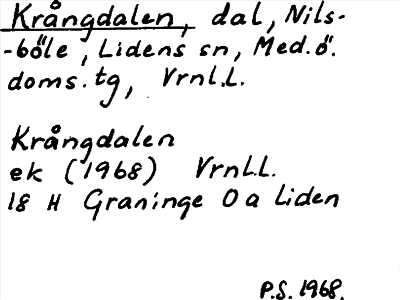 Krångdalen, dal, Nils-
-böle, Lidens sn, Med.ö.
doms.tg, Vrnl.L.
Krångdalen
ek (1968) Vrnl.L.
18 H Graninge O a Liden
P.S. 1968.